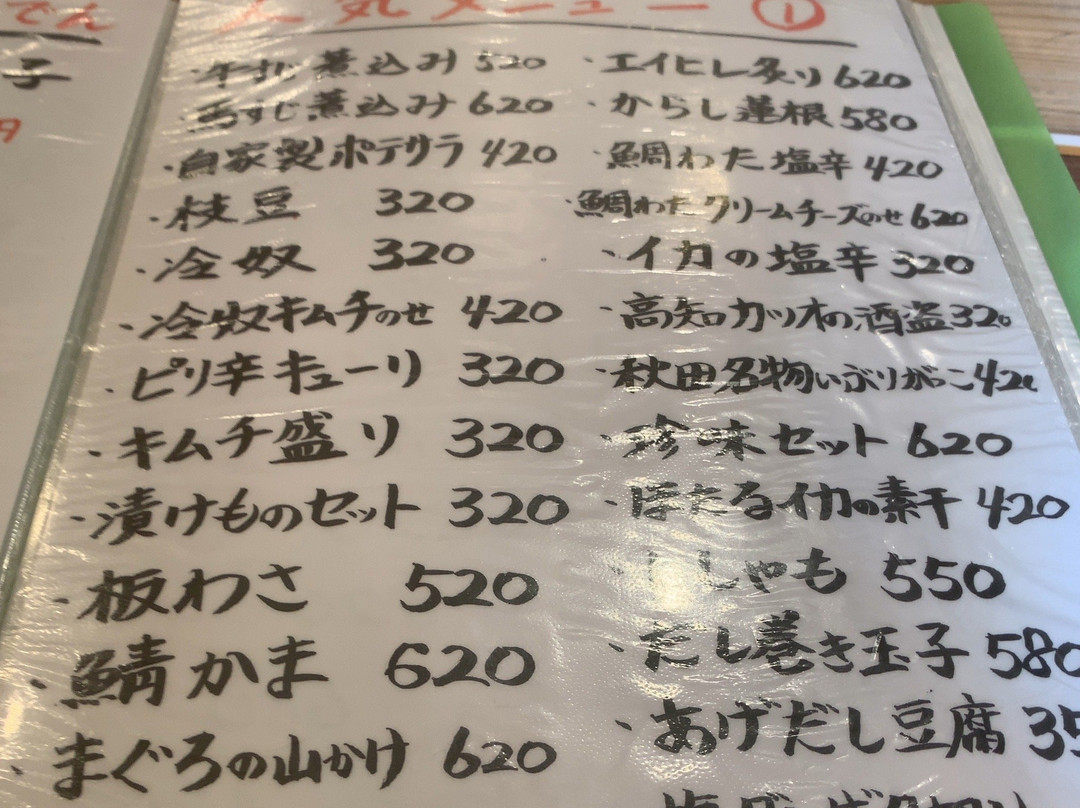 でん
子
人気メニュー ①
・牛すじ煮込み 520
・馬すじ煮込み 620
・自家製ポテサラ 420
・枝豆 320
・冷奴 320
・冷奴キムチのせ 420
・ピリ辛キューリ 320
・キムチ盛り 320
・漬けものセット 320
・板わさ 520
・鯖かま 620
・まぐろの山かけ 620
・エイヒレ炙り 620
・からし蓮根 580
・鯛わた塩辛 420
・鯛わたクリームチーズのせ 620
・イカの塩辛 320
・高知カツオの酒盗 320
・秋田名物いぶりがっこ 420
・珍味セット 620
・ほたるイカの素干 420
・ししゃも 550
・だし巻き玉子 580
・あげだし豆腐 35